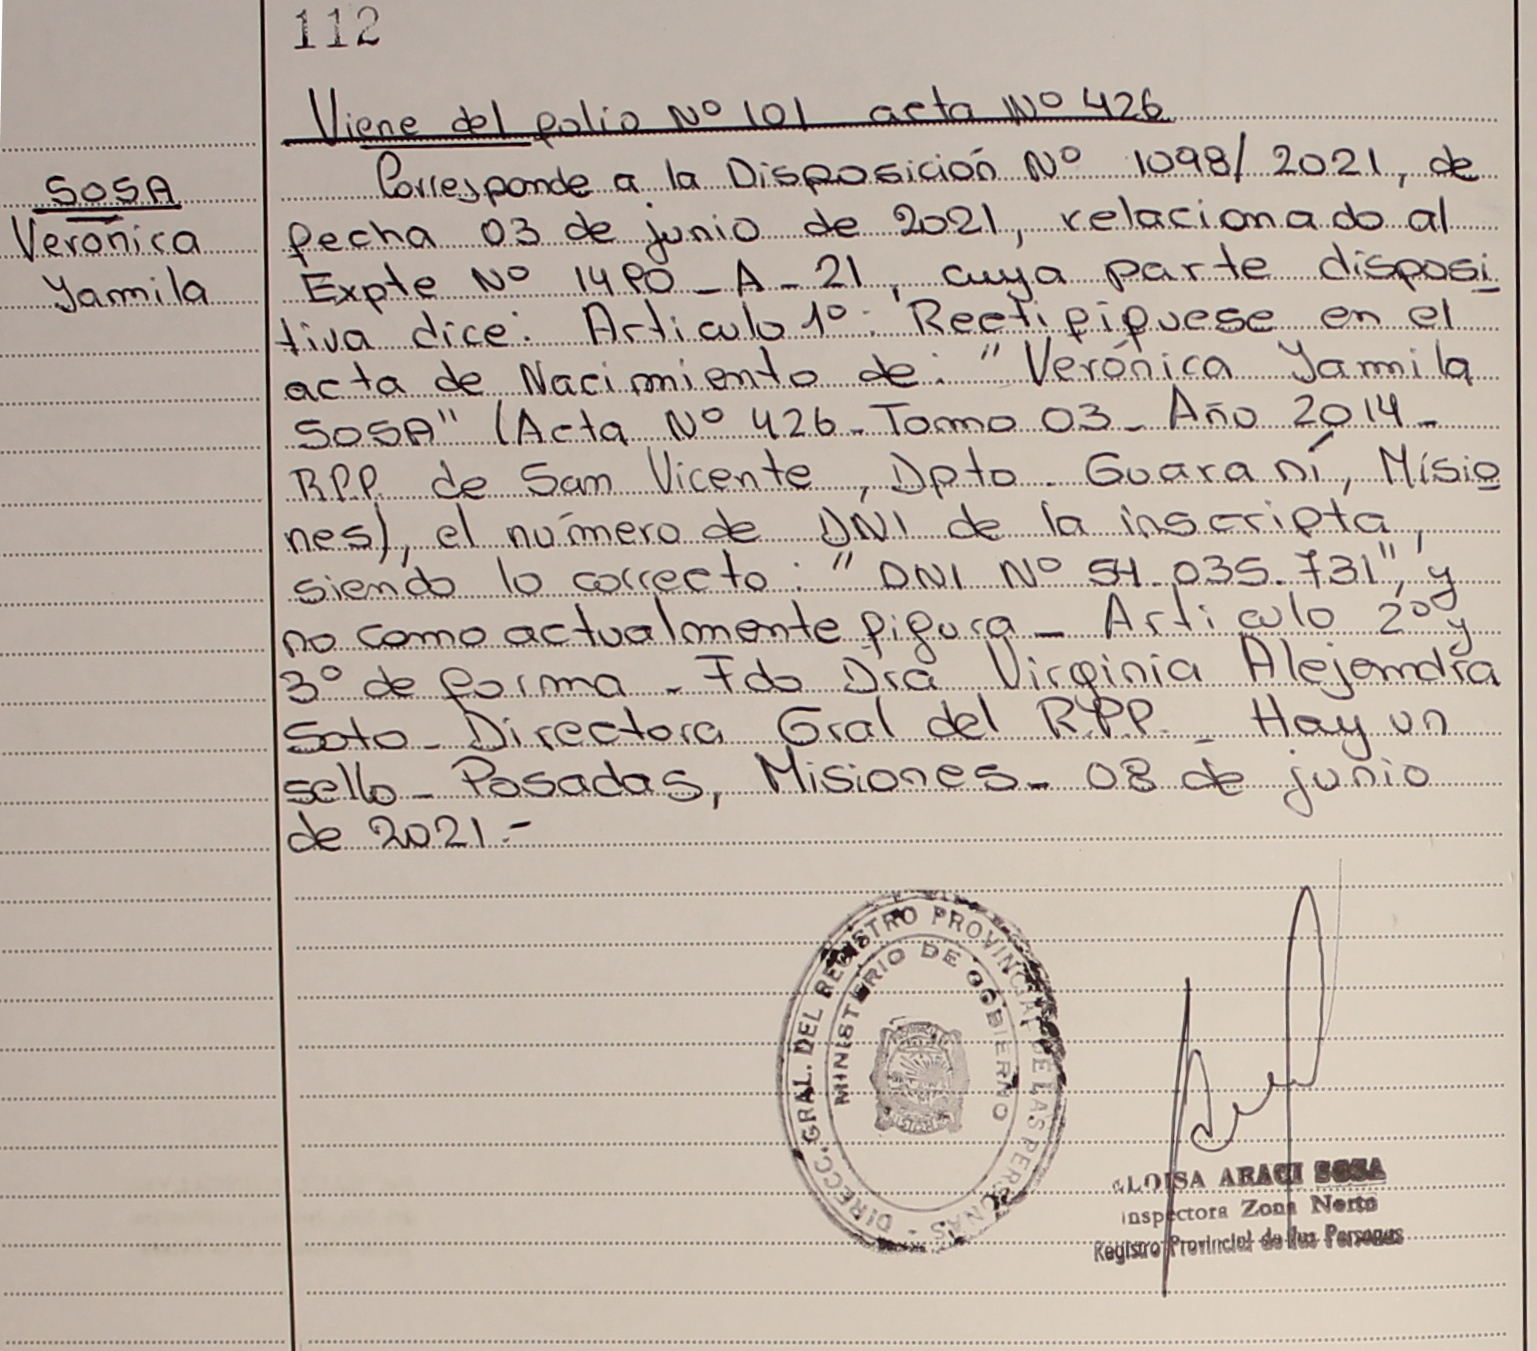 112
Viene del folio Nº 101 acta Nº 426
SOSA
Verónica
Yamila
Corresponde a la Disposición Nº 1098/2021, de
fecha 03 de junio de 2021, relacionado al
Expte Nº 1490-A-21, cuya parte disposi
tiva dice: Articulo 1º: Rectifiquese en el
acta de Nacimiento de: "Verónica Yamila
SOSA" (Acta Nº 426-Tomo 03-Año 2014-
R.P.P. de San Vicente, Dpto. Guaraní, Misio
nes), el número de DNI de la inscripta,
siendo lo correcto: "DNI Nº 54.035.731", y
no como actualmente figura- Articulo 2º y
3º de forma - Fdo Dra Virginia Alejandra
Soto- Directora Gral del R.P.P. - Hay un
sello- Posadas, Misiones- 08 de junio
de 2021.-
DIRECC. GRAL. DEL REGISTRO PROVINCIAL DE LAS PERSONAS -
MINISTERIO DE GOBIERNO
ELOISA ARACI SOSA
Inspectora Zona Norte
Registro Provincial de las Personas